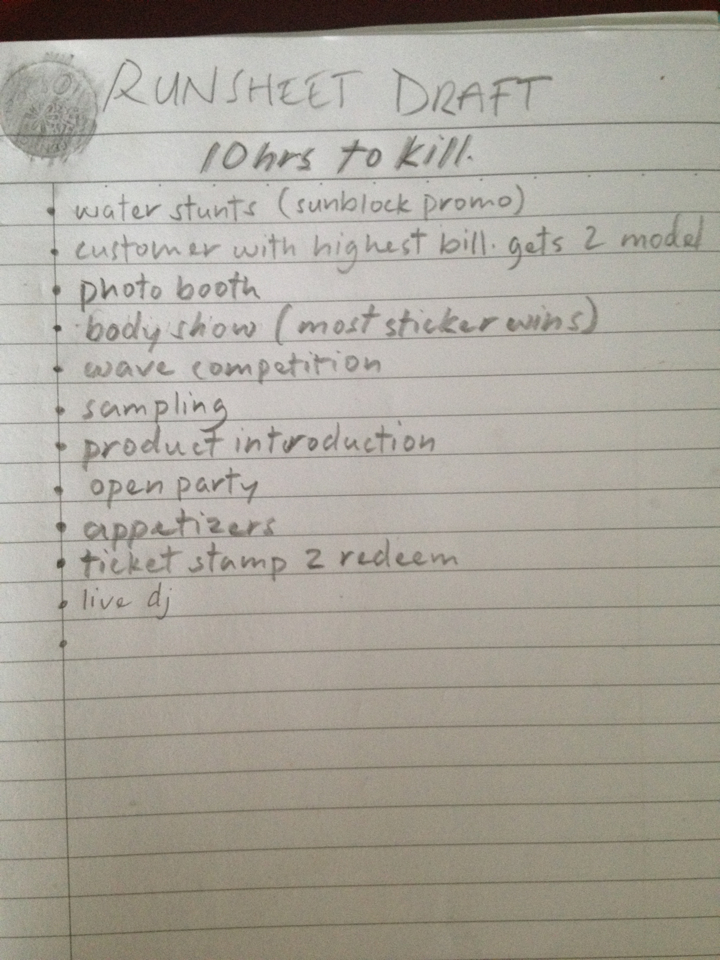 RUNSHEET DRAFT
10hrs to kill.
• water stunts (sunblock promo)
• customer with highest bill. gets 2 model
• photo booth
• body show (most sticker wins)
• wave competition
• sampling
• product introduction
• open party
• appetizers
• ticket stamp 2 redeem
• live dj
•